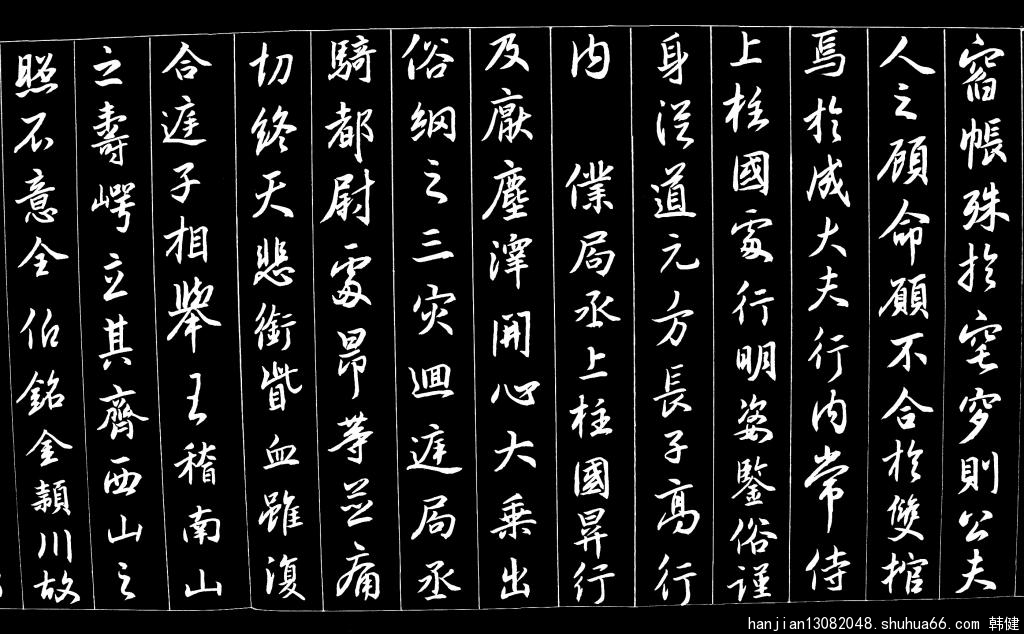 窅帳殊於空穸則公夫
人之顧命顧不合於雙棺
焉於咸大夫行內常侍
上柱國處行明姿鑒俗謹
身從道元方長子高行
內 僕局丞上柱國昇行
及厭塵滓開心大乘出
俗網之三灾迴遅局丞
騎都尉處昂等並痛
切終天悲銜眥血雖復
合遅子相舉王稽南山
之壽崿立其齊西山之
照不意全佰銘金潁川故
hanjian13082048.shuhua66.com 韩健